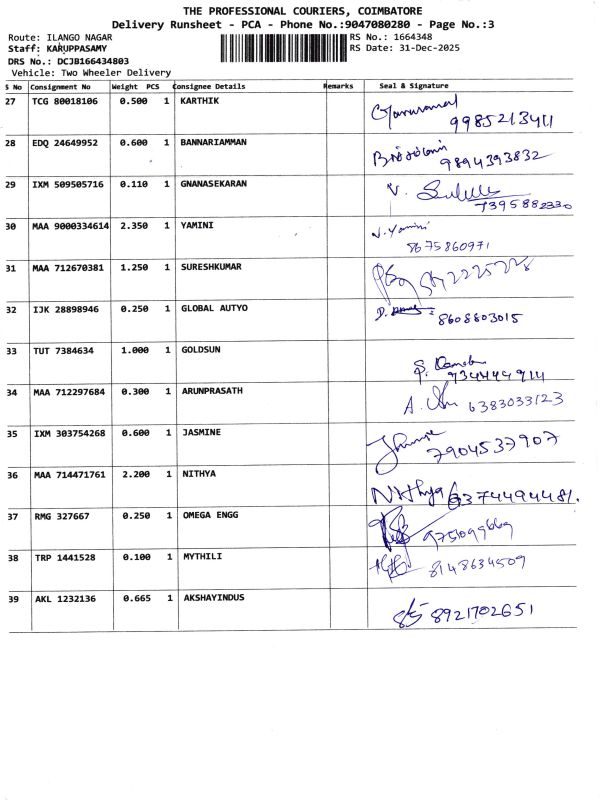 THE PROFESSIONAL COURIERS, COIMBATORE
Delivery Runsheet - PCA - Phone No.:9047080280 - Page No.:3
Route: ILANGO NAGAR RS No.: 1664348
Staff: KARUPPASAMY RS Date: 31-Dec-2025
DRS No.: DCJB166434803
Vehicle: Two Wheeler Delivery
S No Consignment No Weight PCS Consignee Details Remarks Seal & Signature
27 TCG 80018106 0.500 1 KARTHIK
9985213411
28 EDQ 24649952 0.600 1 BANNARIAMMAN
9894393832
29 IXM 509505716 0.110 1 GNANASEKARAN V.
7395882330
30 MAA 9000334614 2.350 1 YAMINI V. Yamini
8675860971
31 MAA 712670381 1.250 1 SURESHKUMAR
32 IJK 28898946 0.250 1 GLOBAL AUTYO D.
8608803015
33 TUT 7384634 1.000 1 GOLDSUN
34 MAA 712297684 0.300 1 ARUNPRASATH A. 6383033123
35 IXM 303754268 0.600 1 JASMINE
7904537907
36 MAA 714471761 2.200 1 NITHYA Nithya 6374494481.
37 RMG 327667 0.250 1 OMEGA ENGG
38 TRP 1441528 0.100 1 MYTHILI 8148634509
39 AKL 1232136 0.665 1 AKSHAYINDUS
8921702651